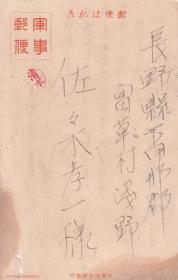 郵便はがき
軍事
郵便
長野縣下伊那郡
富草村浅野
佐々木孝一様